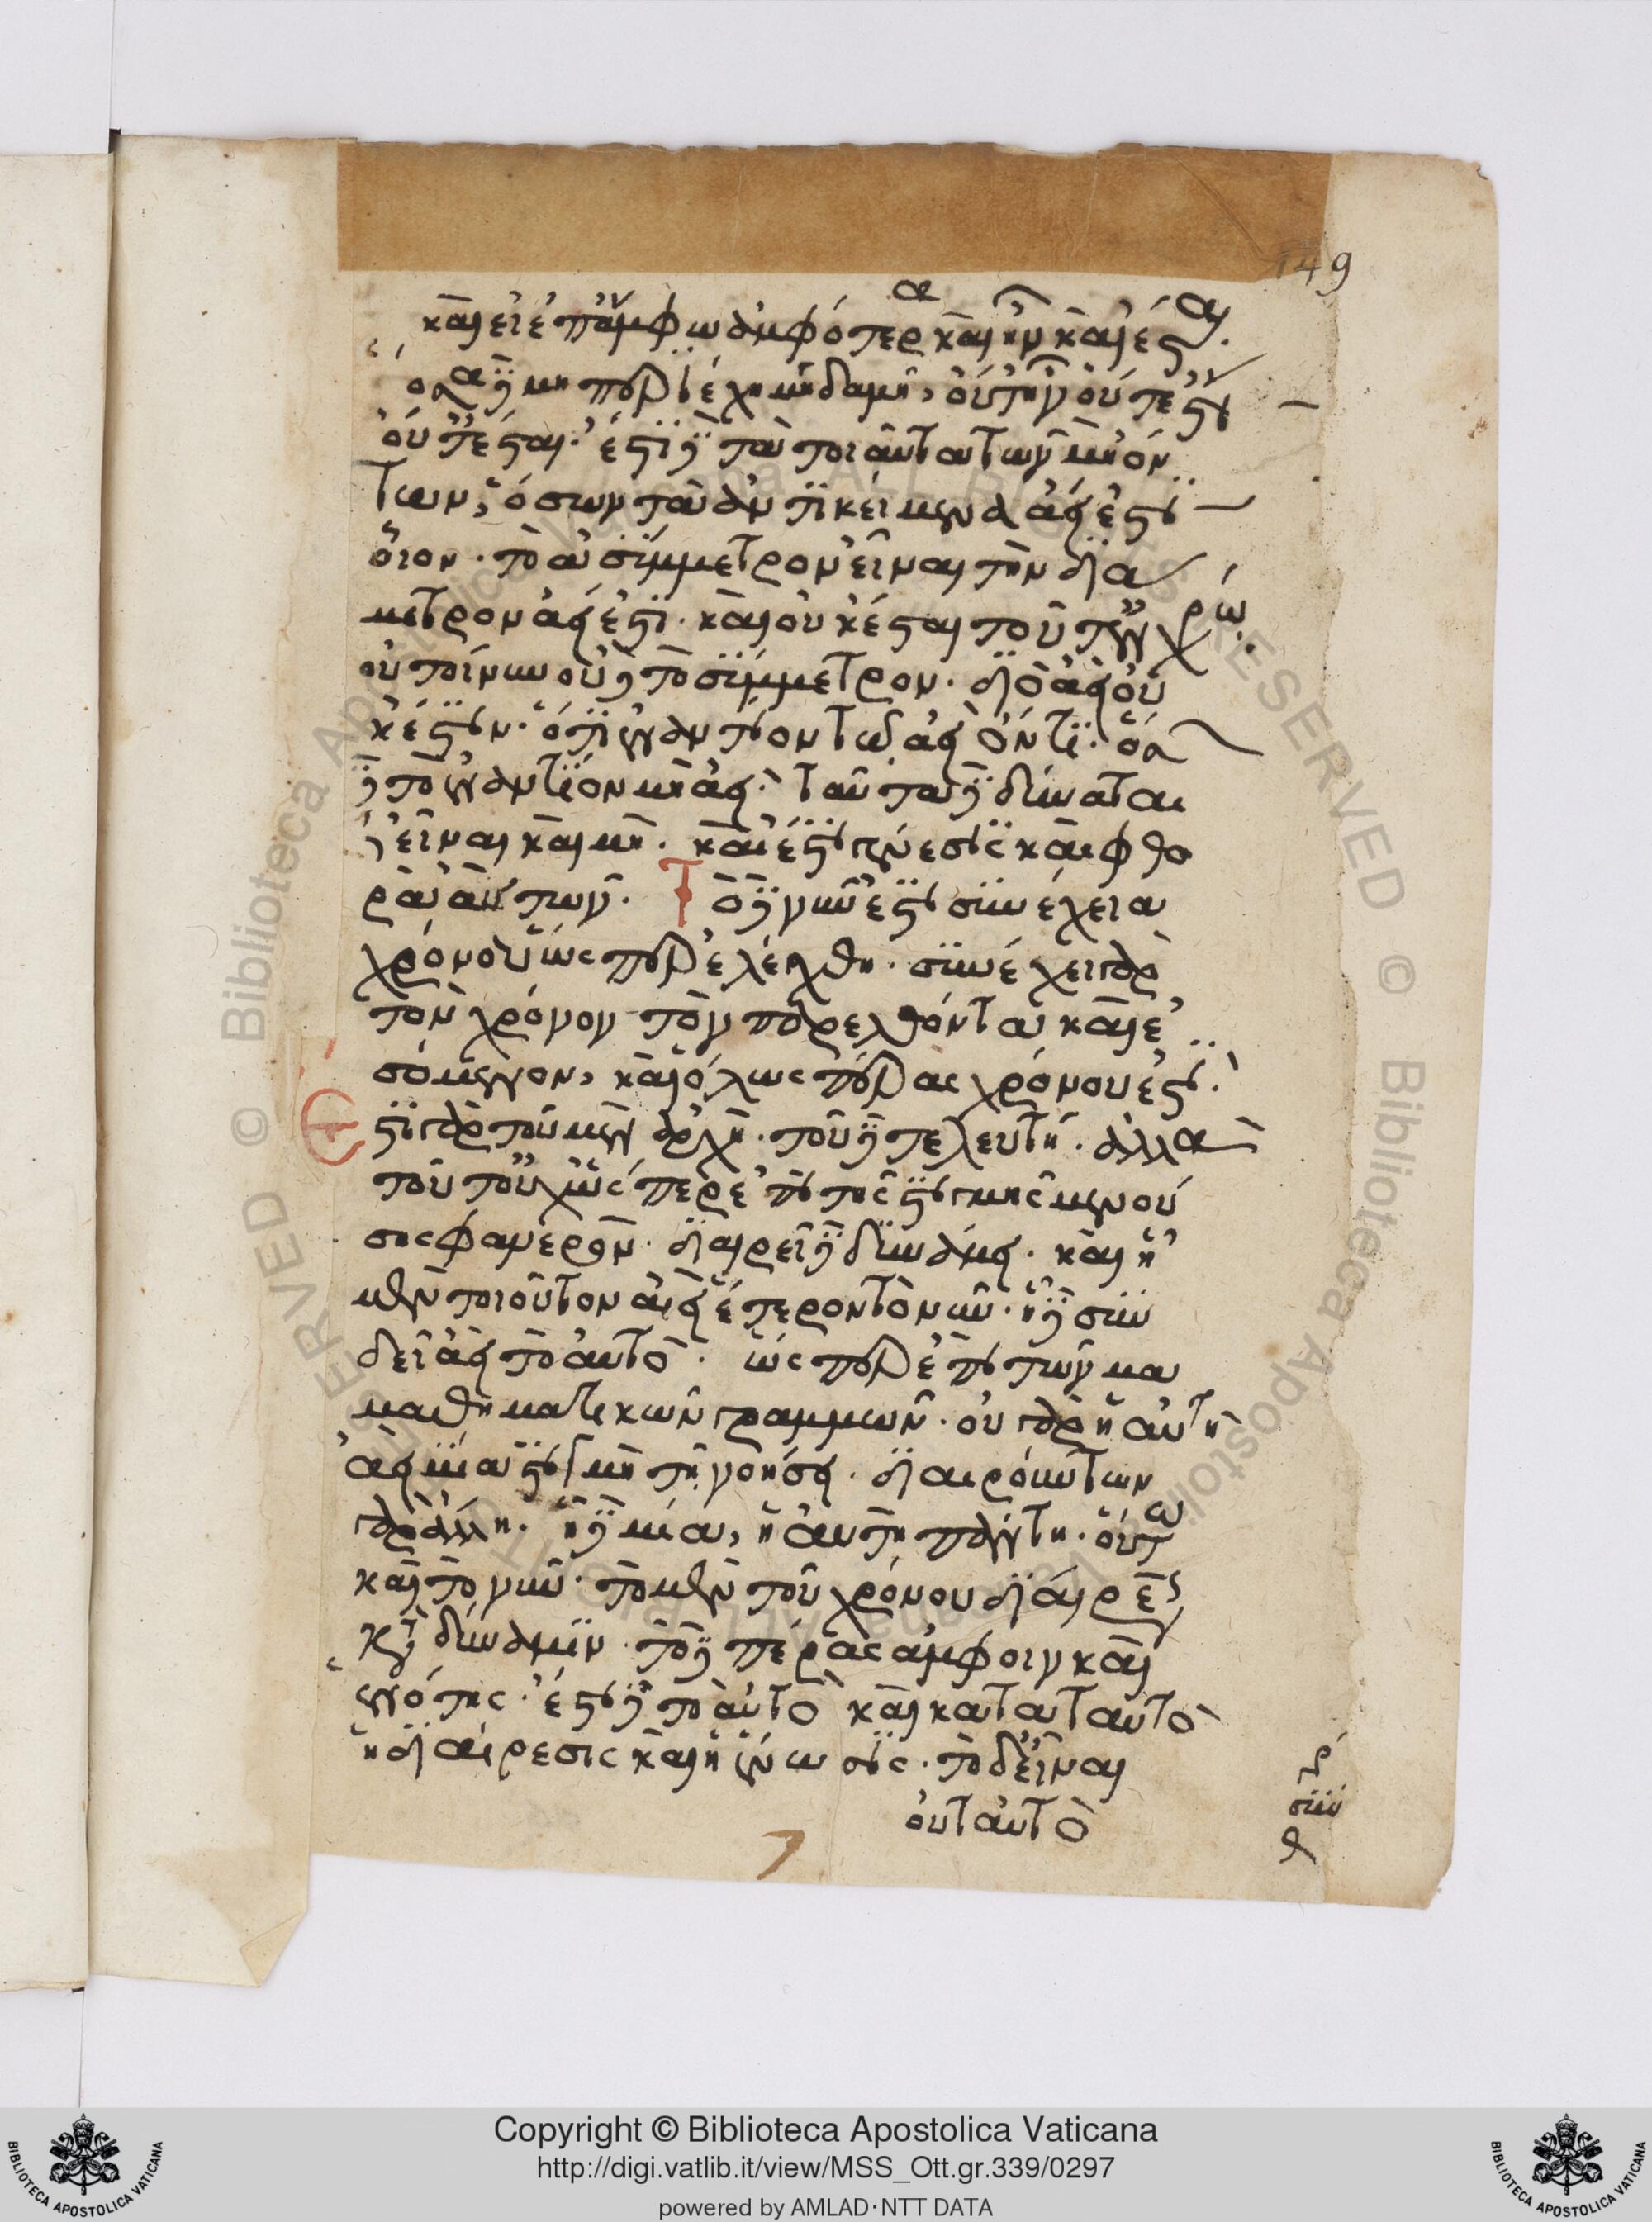 149
καὶ εἰ ἐπ' ἄμφω ἀμφότερα καὶ ἦν καὶ ἔσται.
ὅσα δὲ μὴ περιέχει μηδαμῇ, οὔτ' ἦν οὔτε ἔστιν
οὔτε ἔσται. ἔστι δὲ τὰ τοιαῦτα τῶν μὴ ὄν
των, ὅσων τἀντικείμενα ἀεὶ ἐστι
οἷον. τὸ ἀσύμμετρον εἶναι τὴν διά
μετρον ἀεί ἐστι. καὶ οὐκ ἔσται τοῦτ' ἐν χρόνῳ.
οὐ τοίνυν οὐδὲ τὸ σύμμετρον. διὸ ἀεὶ οὐ
κ ἔστιν. ὅτι ἐναντίον τῷ ἀεὶ ὄντι. ὅσα
δὲ τὸ ἐναντίον μὴ ἀεί. ταῦτα δὲ δύναται
καὶ εἶναι καὶ μή. καὶ ἔστι γένεσις καὶ φθο
ρὰ αὐτῶν. Τὸ δὲ νῦν ἐστι συνέχεια
χρόνου ὥσπερ ἐλέχθη. συνέχει γὰρ
τὸν χρόνον τὸν παρελθόντα καὶ ἐ
σόμενον, καὶ ὅλως πέρας χρόνου ἐστι.
Ἔστι γὰρ τοῦ μὲν ἀρχή. τοῦ δὲ τελευτή. ἀλλὰ
τοῦτ' οὐχ ὥσπερ ἐπὶ τῆς στιγμῆς μενού
σης φανερόν. διαιρεῖ δὲ δυνάμει. καὶ ᾗ
μὲν τοιοῦτον ἀεὶ ἕτερον τὸ νῦν. ᾗ δὲ συν
δεῖ ἀεὶ τὸ αὐτό. ὥσπερ ἐπὶ τῶν μα
μαθηματικῶν γραμμῶν. οὐ γὰρ ἡ αὐτὴ
ἀεὶ μία στιγμὴ τῇ νοήσει. διαιρούντων
γὰρ ἄλλη. ᾗ δὲ μία, ἡ αὐτὴ πάντῃ. οὕτω
καὶ τὸ νῦν. τὸ μὲν τοῦ χρόνου διαίρεσις
κατὰ δύναμιν. τὸ δὲ πέρας ἀμφοῖν καὶ
ἑνότης. ἔστι δὲ τὸ αὐτὸ καὶ κατὰ ταὐτὸ
ἡ διαίρεσις καὶ ἡ ἕνωσις. τὸ δ' εἶναι
οὐ ταὐτὸ